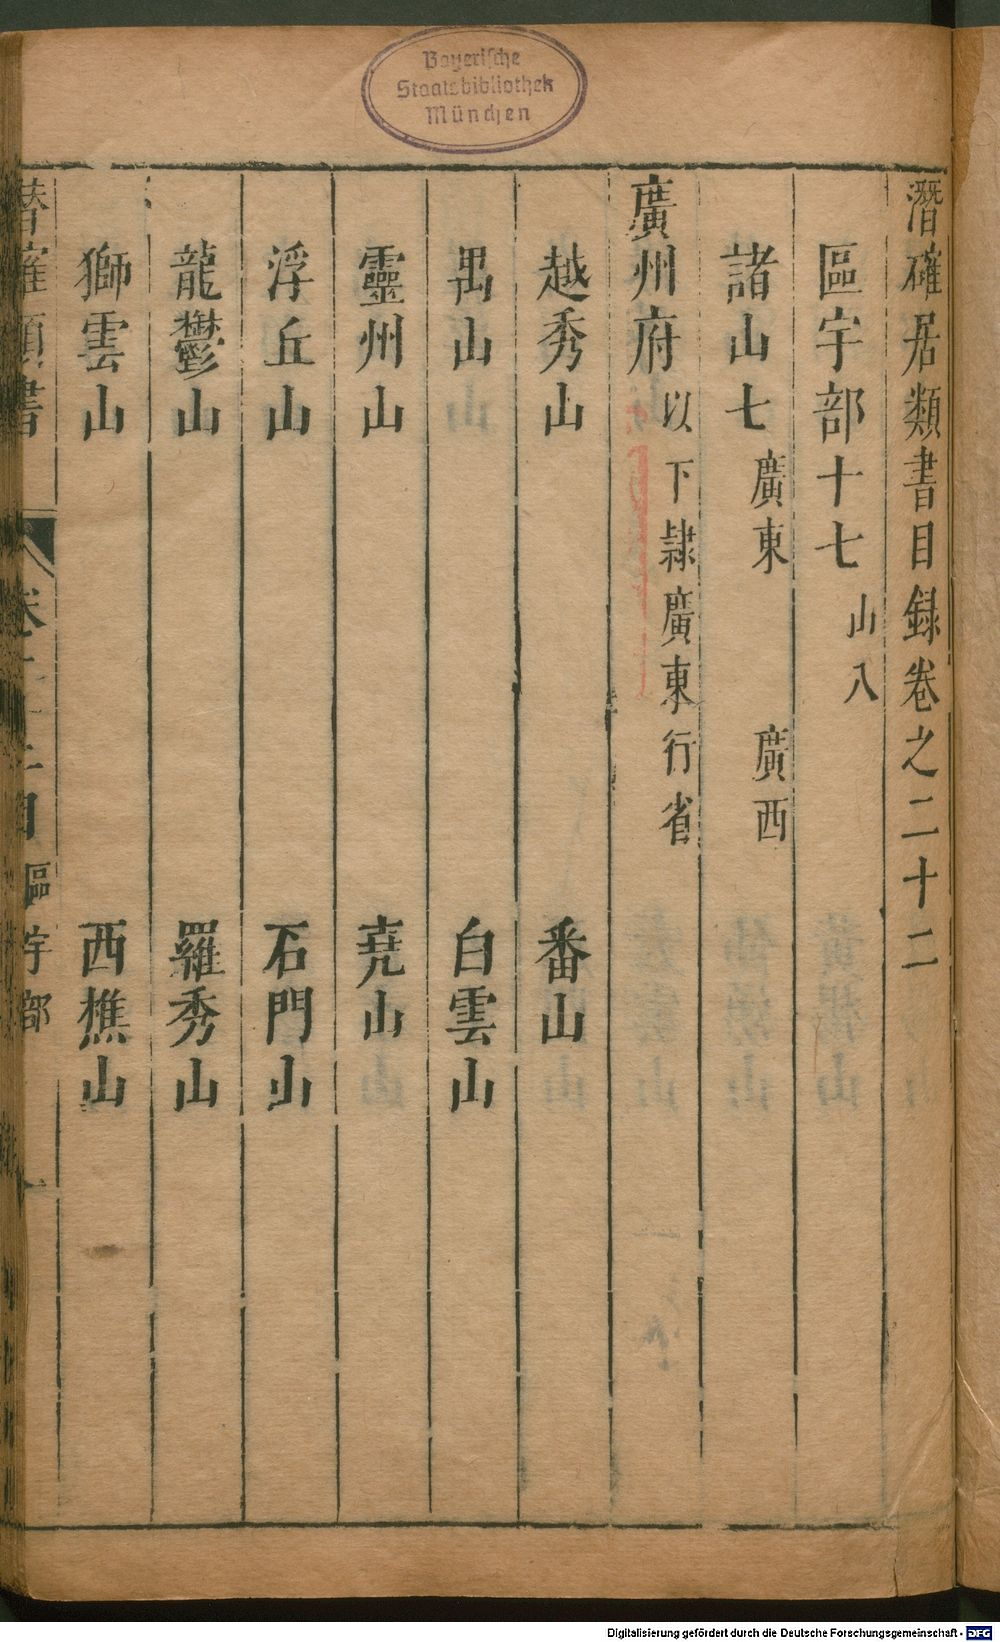 Bayerische
Staatsbibliothek
München
潛確居類書目録卷之二十二
區宇部十七 山八
諸山七 廣東 廣西
廣州府 以下隷廣東行省
越秀山 番山
禺山 白雲山
靈州山 堯山
浮丘山 石門山
龍鬱山 羅秀山
獅雲山 西樵山
區宇部
Digitalisierung gefördert durch die Deutsche Forschungsgemeinschaft - DFG